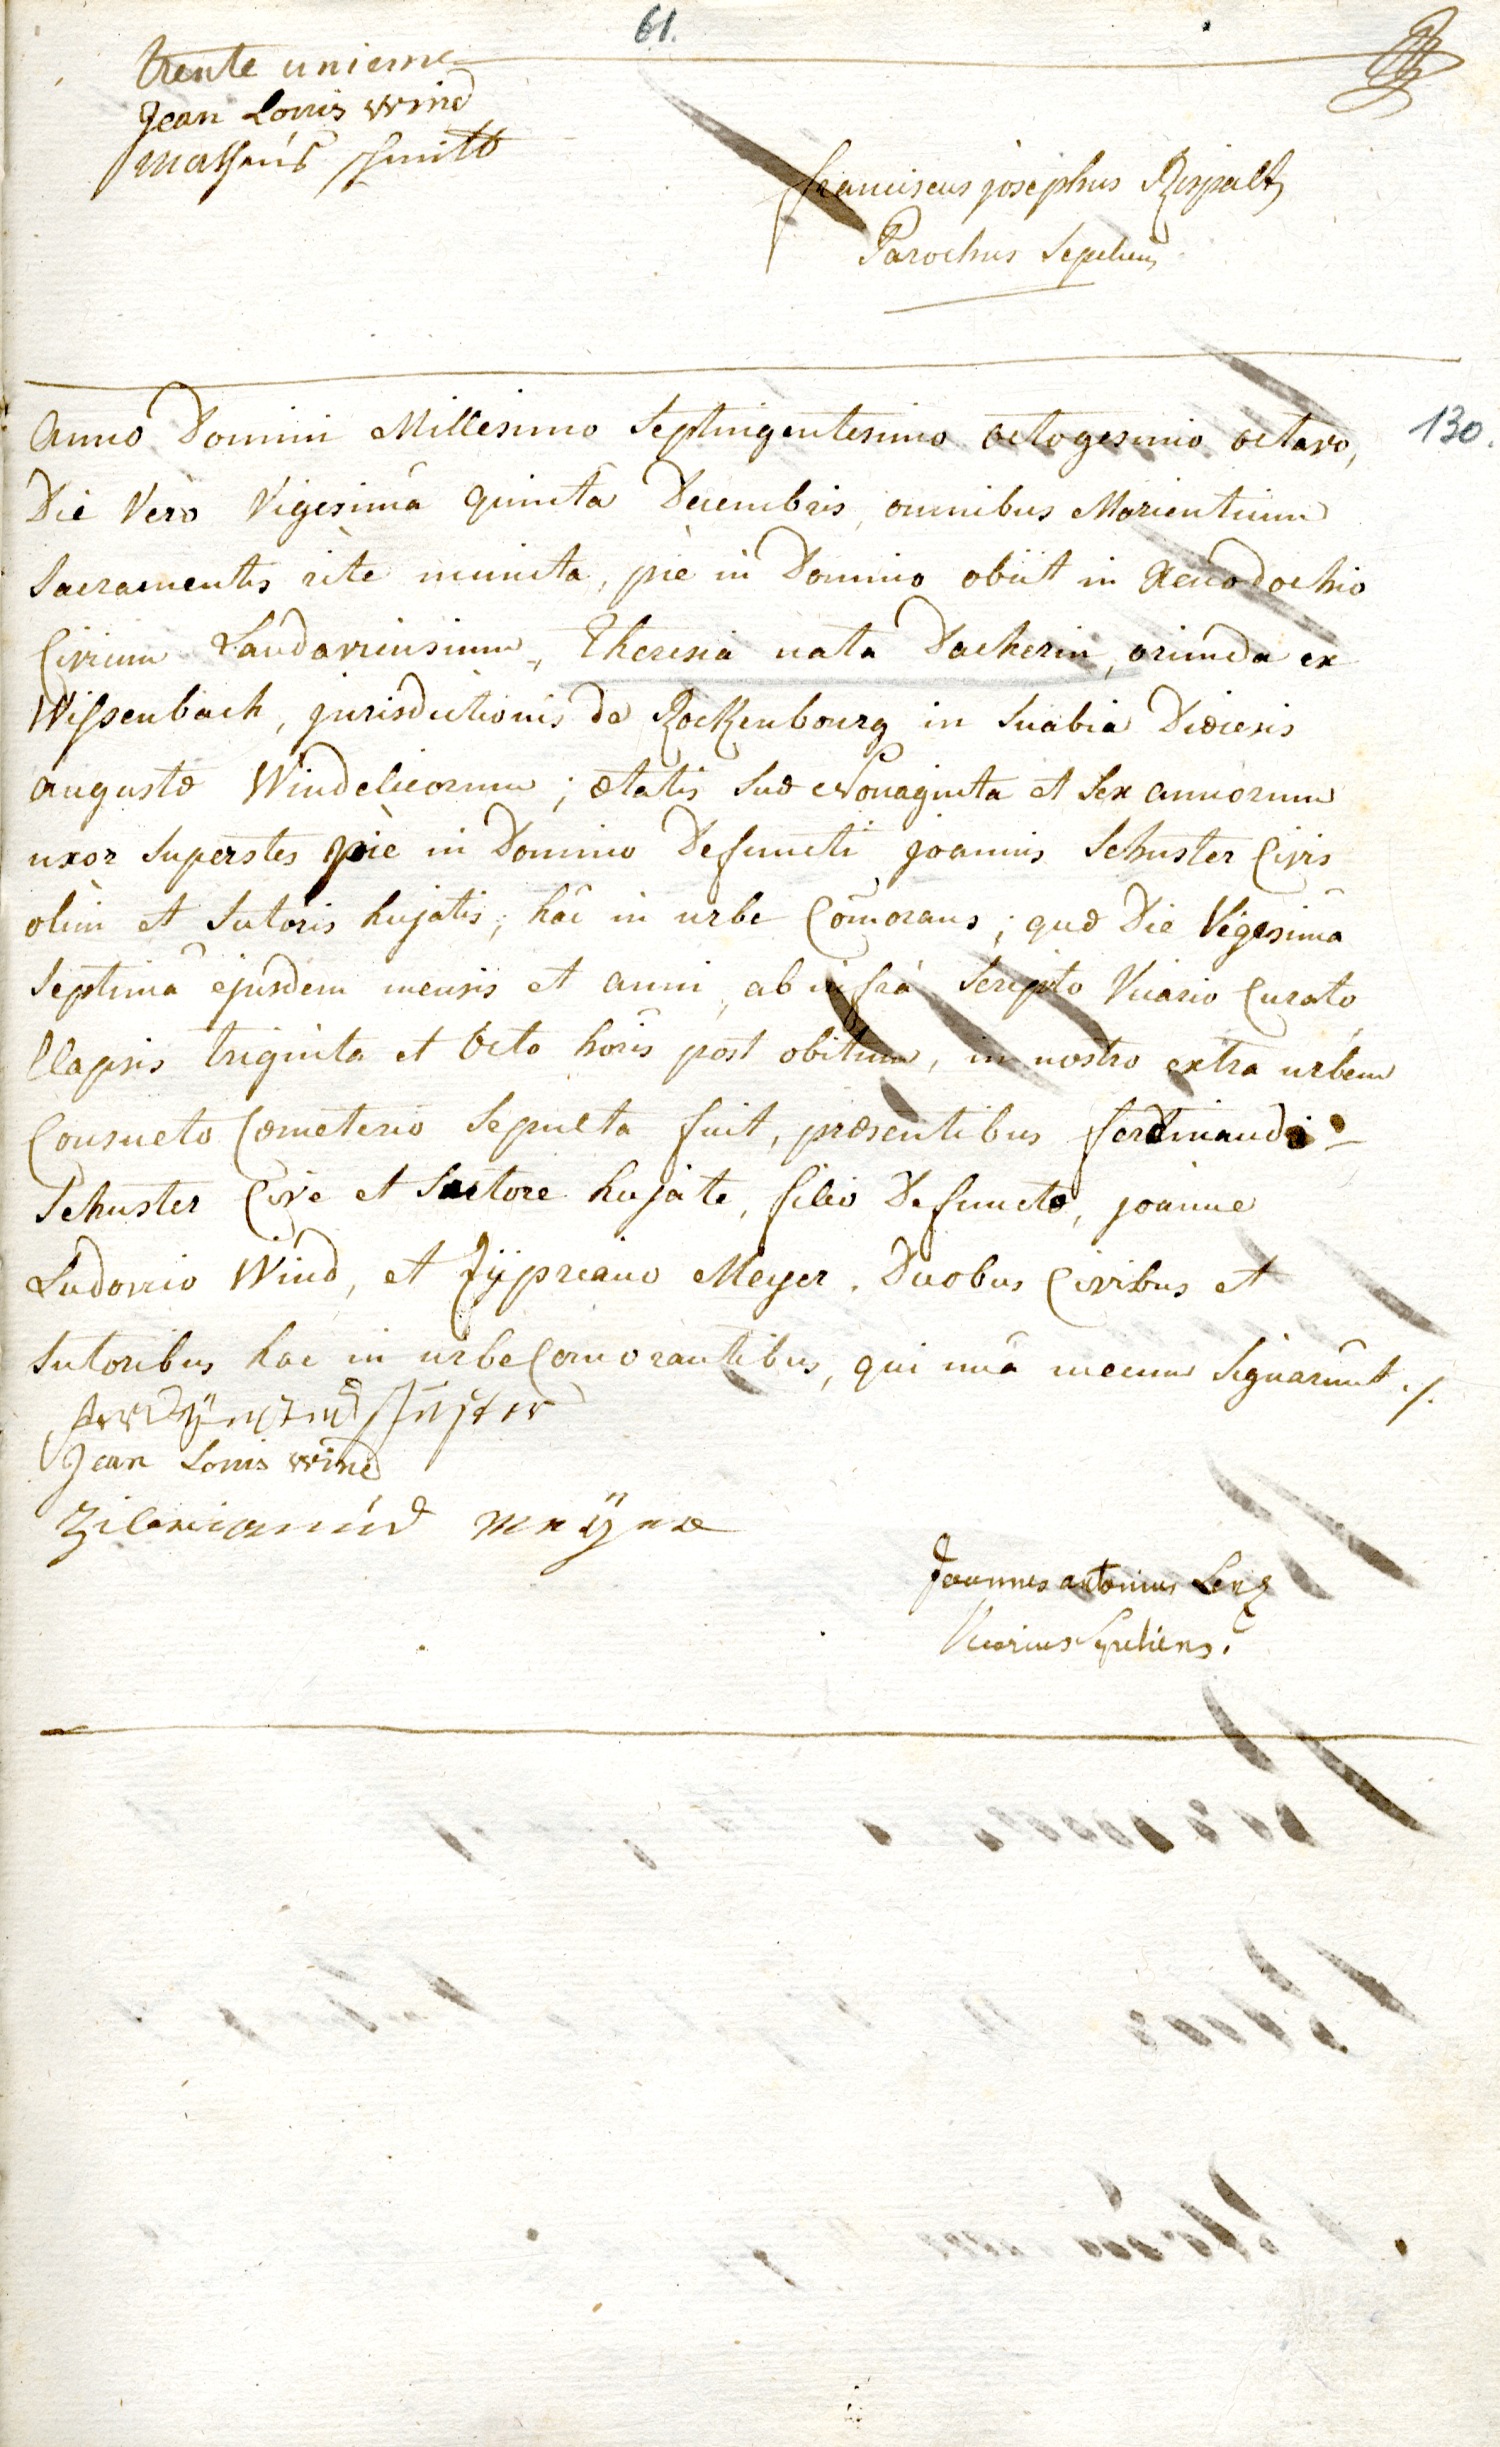 61.
trente unieme
Jean Louis Wind
Matheus Schmitt
franciscus josephus Rispalt
Parochus Sepeliens
130.
Anno Domini Millesimo Septingentesimo octogesimo octavo,
Die Vero Vigesimâ quintâ Decembris, omnibus Morientium
Sacramentis ritè munita, piè in Domino obiit in Xenodochio
Civium Landaviensium, Theresia nata Dackerin, oriunda ex
Wissenbach, jurisdictionis de Rockenbourg in Suabia Diœcesis
augustæ Windelicorum; ætatis suæ Nonaginta et sex annorum
uxor superstes piè in Domino Defuncti joannis Schuster Civis
olim et Sutoris hujatis; hâc in urbe Com̃orans; quæ Die Vigesimâ
septimâ ejusdem mensis et anni, ab infrà scripto Vicario Curato
Elapsis triginta et octo horis post obitum, in nostro extra urbem
Consueto Cœmeterio sepulta fuit, præsentibus ferdinando
Schuster Cive et Sutore hujate, filio Defunctæ, joanne
Ludovico Wind, et Zÿpriano Meyer. Duobus Civibus et
Sutoribus hac in urbe Comorantibus, qui unâ mecum Signarunt ./.
Jean Louis Wind
Joannes antonius Lenz
Vicarius Sepeliens.